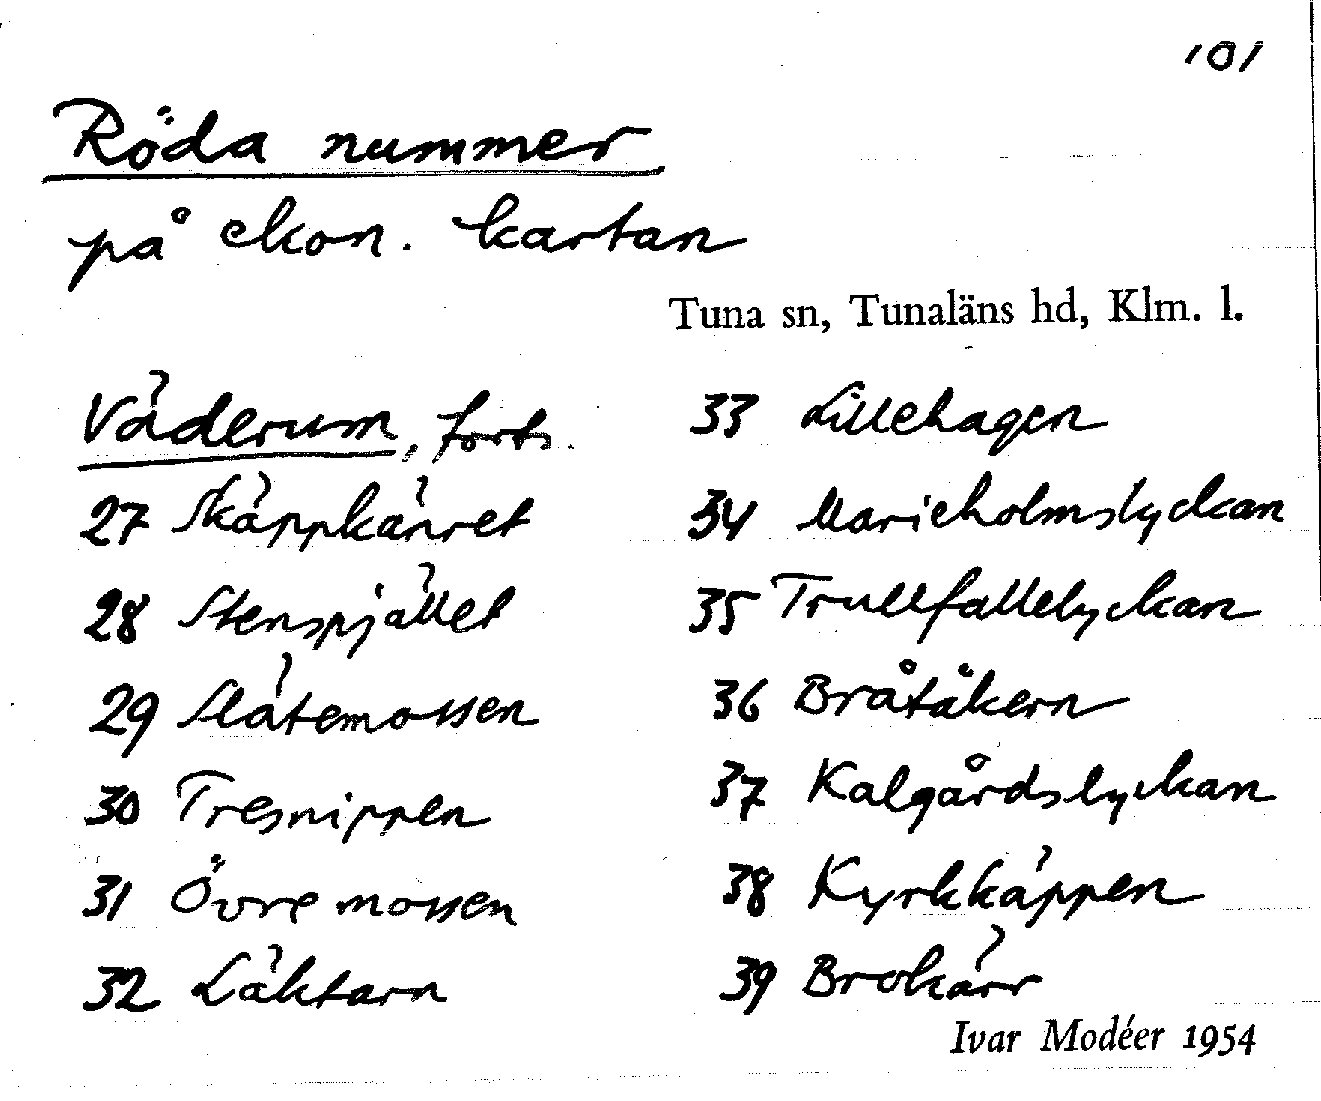 101
Röda nummer
på ekon. kartan
Tuna sn, Tunaläns hd, Klm. l.
Väderum, forts.
27 Skäppkärret
28 Stenspjället
29 Slätemossen
30 Tresnippen
31 Övre mossen
32 Läktarn
33 Lillehagen
34 Marieholmslyckan
35 Trullfallelyckan
36 Bråtäkern
37 Kalgårdslyckan
38 Kyrkkäppen
39 Brokärr
Ivar Modéer 1954